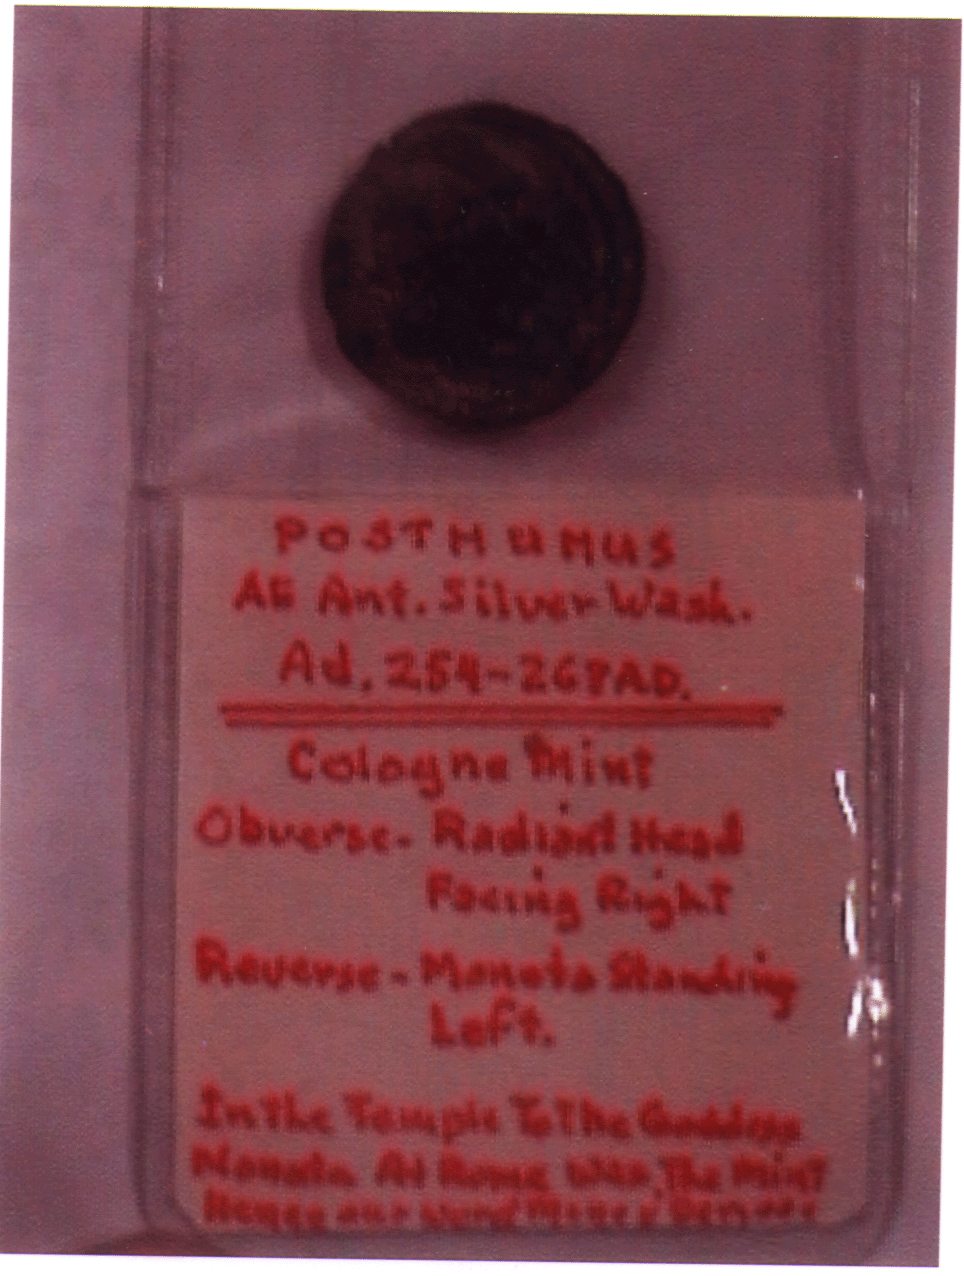 POSTHUMUS
AE Ant. Silver Wash.
Ad. 254-268AD.
Cologne Mint
Obverse- Radiant Head
Facing Right
Reverse- Moneta Standing
Left.
In the Temple To The Goddess
Moneta At Rome Was The Mint
Hence our Word Money